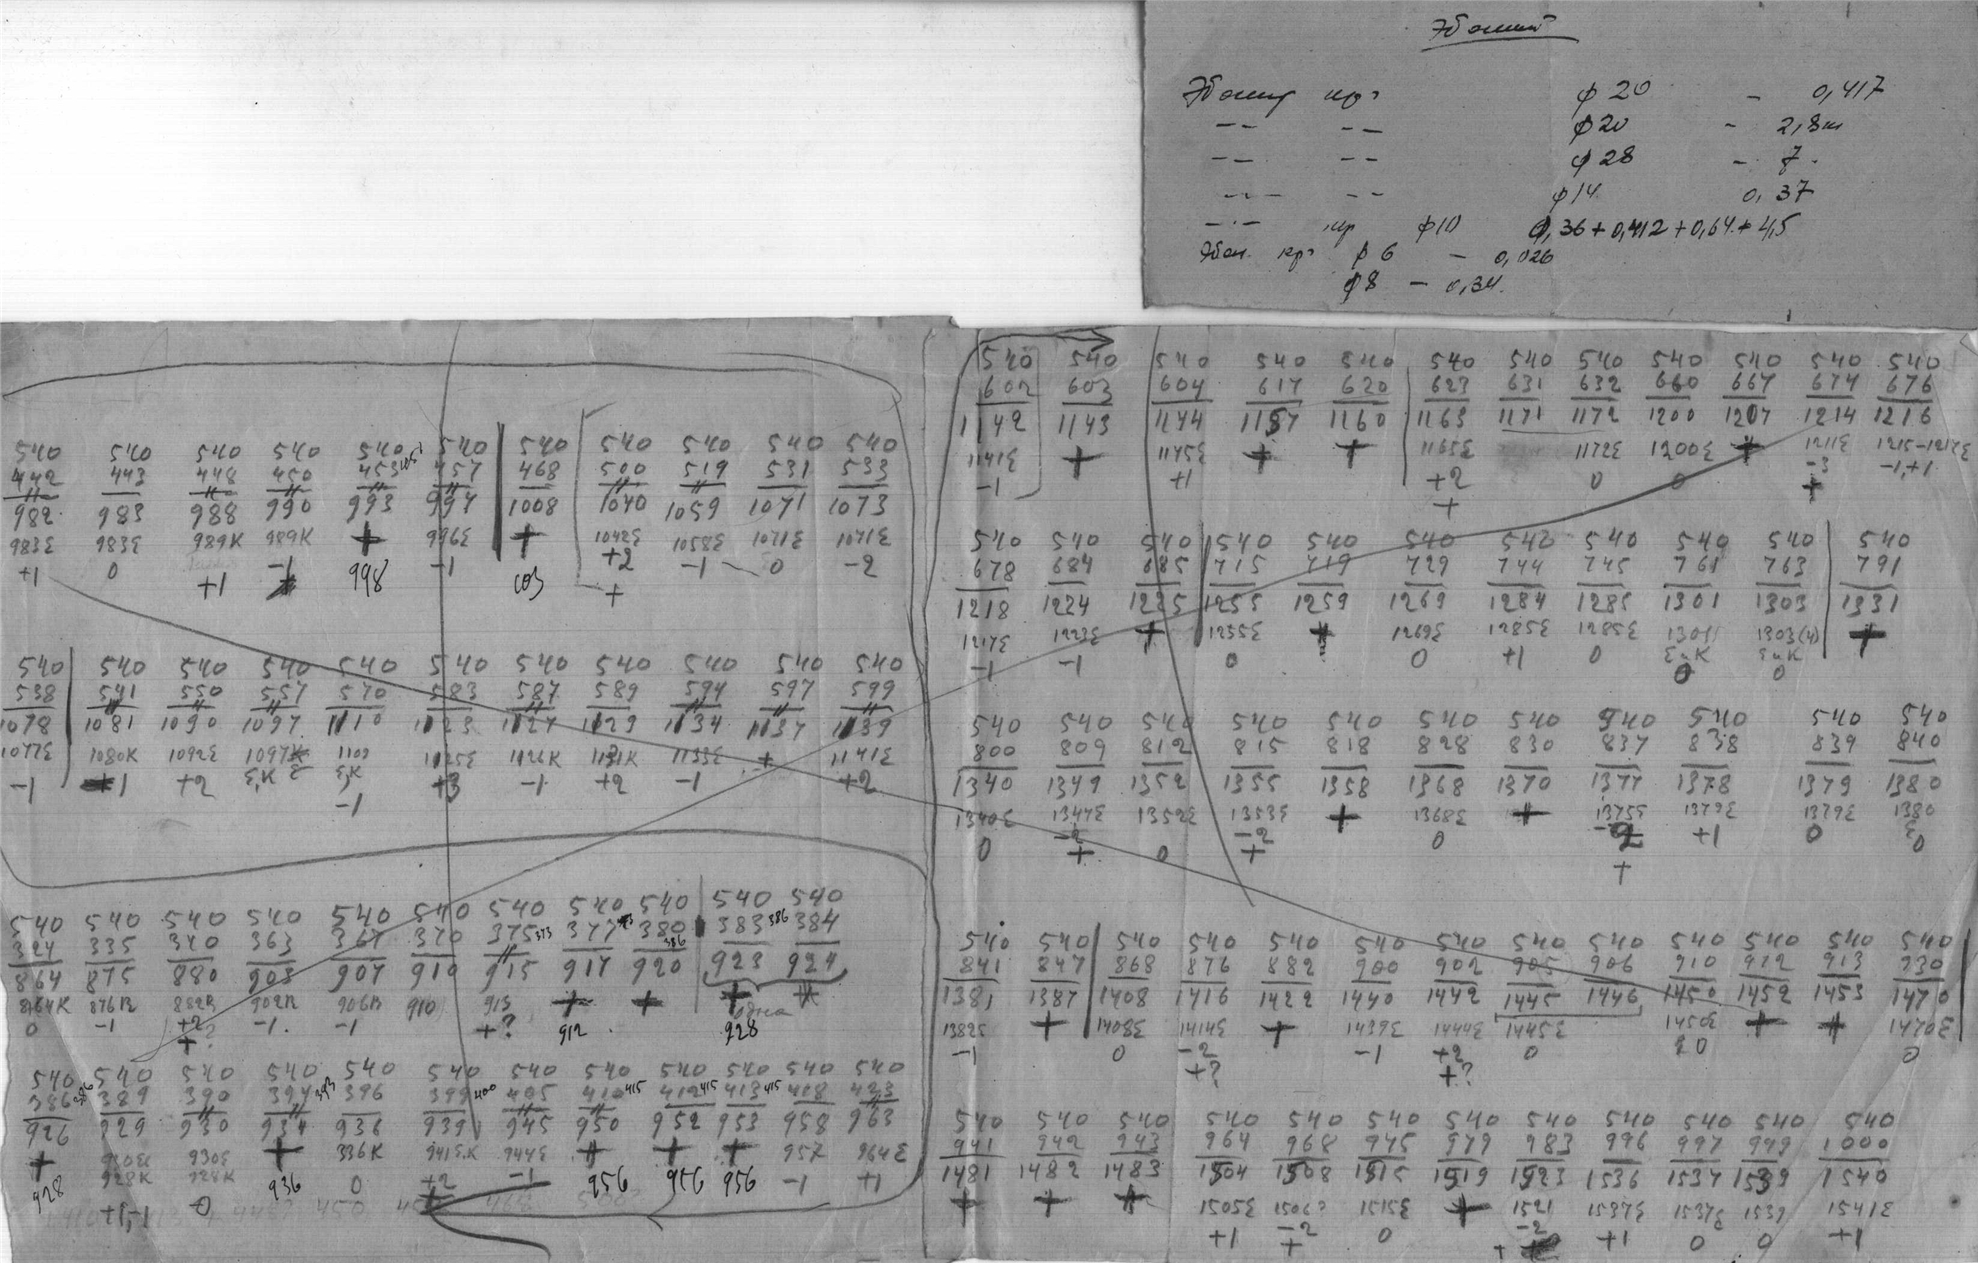 Эбонит
Эбонит кр. ф 20 – 0,417
-- -- ф 20 – 2,8
-- -- ф 28 – 7.
-- -- ф 14 0,37
-- кр ф 10 0,36 + 0,412 + 0,64 + 4,5
Эбон. кр. ф 6 – 0,026
ф 8 – 0,34.
540 540 540 540 540 540 540 540 540 540 540
442 443 448 450 453 457 468 500 519 531 533
982 983 988 990 993 997 1008 1040 1059 1071 1073
983Е 983Е 989К 989К + 996Е + 1042Е 1058Е 1071Е 1071Е
+1 0 +1 -1 998 -1 +2 -1 0 -2
+
540 540 540 540 540 540 540 540 540 540 540
538 541 550 557 570 583 587 589 594 597 599
1078 1081 1090 1097 1110 1123 1127 1129 1134 1137 1139
1077Е 1080К 1092Е 1097К 1109 1125Е 1126К 1131К 1133Е + 1141Е
Е,К Е Е,К
-1 +1 +2 -1 +3 -1 +2 -1 +2
540 540 540 540 540 540 540 540 540 540 540
324 335 340 363 367 370 375 373 377 380 386 383 386 384
864 875 880 903 907 910 915 917 920 923 924
864К 876К 882К 902К 906К 910 915 + + + +
0 -1 +2 -1 -1 +? 912 одна
+ ? 928
540 540 540 540 540 540 540 540 540 540 540 540
386 389 390 394 393 396 399 400 405 410 415 412 415 413 415 418 423
926 929 930 934 936 939 945 950 952 953 958 963
+ 930Е 930Е + 936К 941Е.К 944Е + + + 957 964Е
928 928К 928К 936 0 +2 -1 956 956 956 -1 +1
+1,-1 0
540 540 540 540 540 540 540 540 540 540 540 540
602 603 604 617 620 623 631 632 660 667 674 676
1142 1143 1144 1157 1160 1163 1171 1172 1200 1207 1214 1216
1141Е + 1145Е + + 1165Е 1172Е 1200Е + 1211Е 1215-1217Е
-1 +1 +2 0 0 -3 -1,+1
+ +
540 540 540 540 540 540 540 540 540 540 540
678 684 685 715 719 729 744 745 761 763 791
1218 1224 1225 1255 1259 1269 1284 1285 1301 1303 1331
1217Е 1223Е + 1255Е + 1269Е 1285Е 1285Е 1301 1303(4) +
Е и К Е и К
-1 -1 0 0 +1 0 0 0
540 540 540 540 540 540 540 540 540 540 540
800 809 812 815 818 828 830 837 838 839 840
1340 1349 1352 1355 1358 1368 1370 1377 1378 1379 1380
1340Е 1347Е 1352Е 1353Е + 1368Е + 1375Е 1379Е 1379Е 1380
Е
0 -2 0 -2 0 -2 +1 0 0
+ + +
540 540 540 540 540 540 540 540 540 540 540 540 540
841 847 868 876 882 900 902 905 906 910 912 913 930
1381 1387 1408 1416 1422 1440 1442 1445 1446 1450 1452 1453 1470
1382Е + 1408Е 1414Е + 1439Е 1444Е 1445Е 1450Е + + 1470Е
-1 0 -2 -1 +2 0 0 0
+? +?
540 540 540 540 540 540 540 540 540 540 540 540
941 942 943 964 968 975 979 983 996 997 999 1000
1481 1482 1483 1504 1508 1515 1519 1523 1536 1537 1539 1540
+ + + 1505Е 1506 1515Е + 1521 1537Е 1537Е 1539 1541Е
+1 -2 0 -2 +1 0 0 +1
+ +